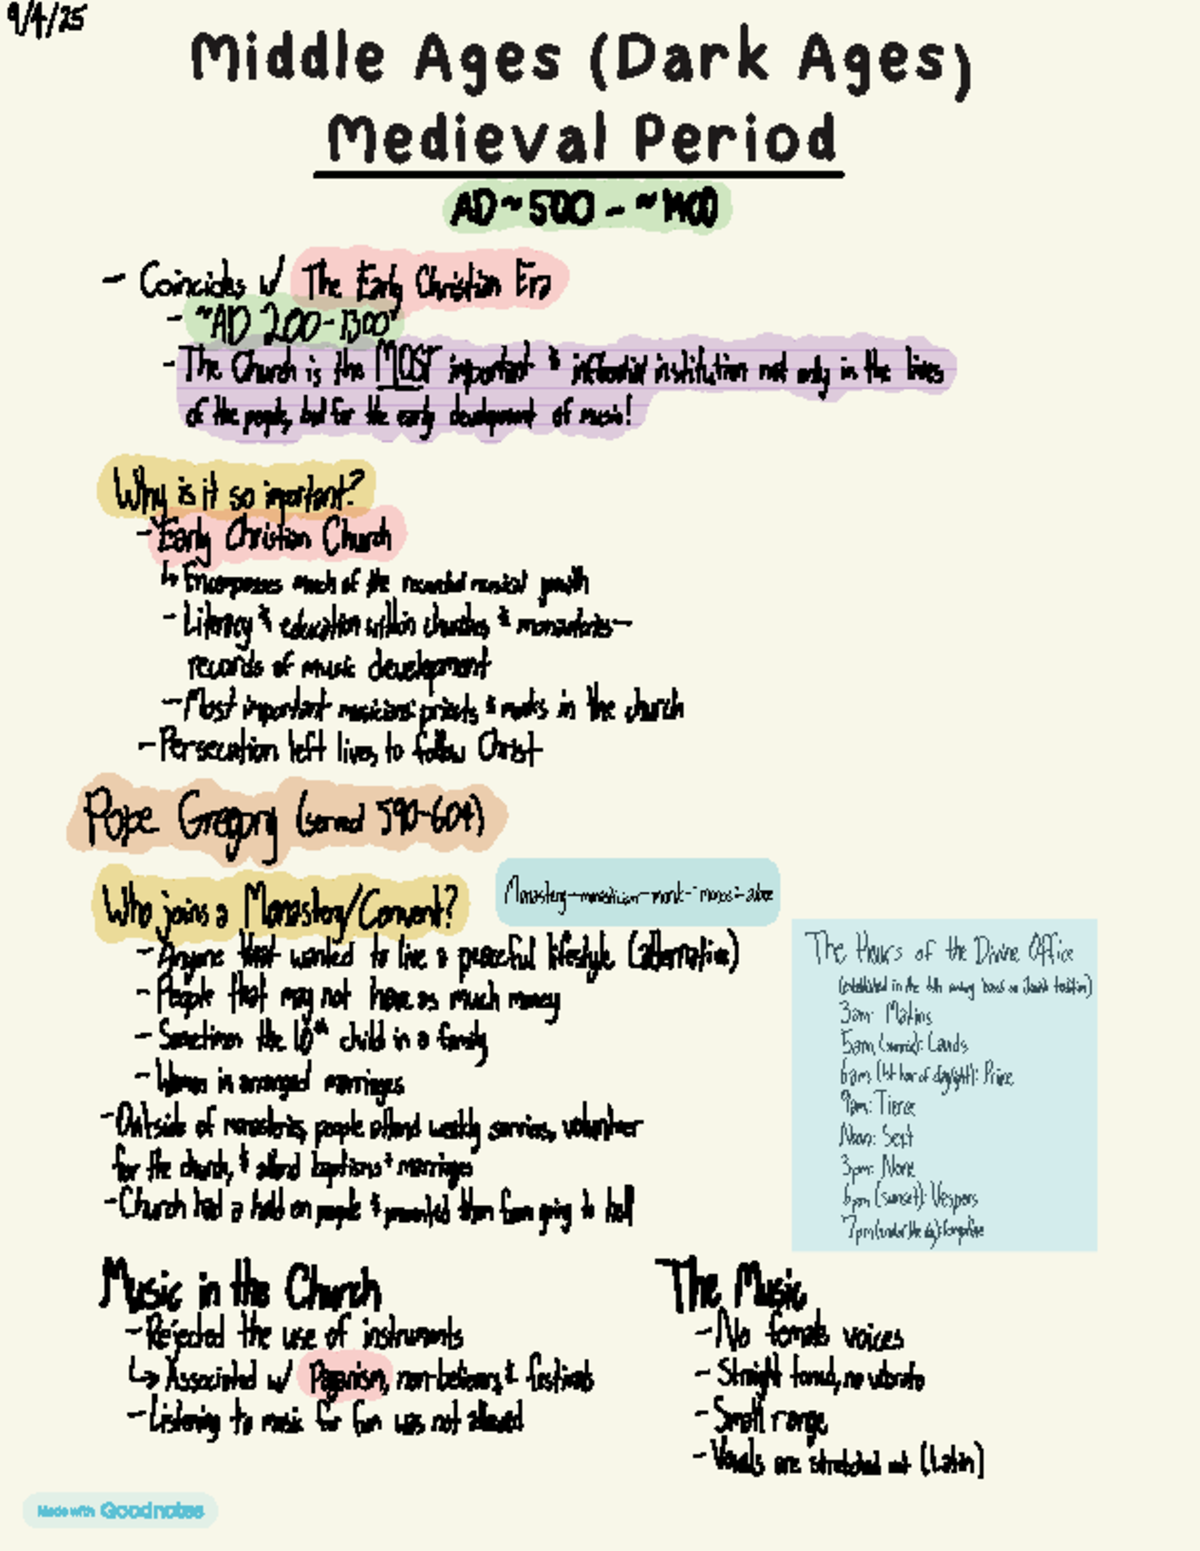 9/4/25
Middle Ages (Dark Ages)
Medieval Period
AD ~500 - ~1400
- Coincides w/ The Early Christian Era
- ~AD 200-1300
- The Church is the MOST important & influential institution not only in the lives
of the people, but for the early development of music!
Why is it so important?
- Early Christian Church
↳ Encompasses much of the recorded musical growth
- Literacy & education within churches & monasteries-
records of music development
- Most important musicians: priests & monks in the church
- Persecution left lives to follow Christ
Pope Gregory (served 590-604)
Who joins a Monastery/Convent?
Monastery-monasticism-monk-"monos"=alone
- Anyone that wanted to live a peaceful lifestyle (alternative)
- People that may not have as much money
- Sometimes the 10th child in a family
- Women in arranged marriages
- Outside of monasteries, people attend weekly services, volunteer
for the church, & attend baptisms & marriages
- Church had a hold on people & prevented them from going to hell
The Hours of the Divine Office
(established in the 6th century based on Jewish tradition)
3am: Matins
5am (sunrise): Lauds
6am (1st hour of daylight): Prime
9am: Tierce
Noon: Sext
3pm: None
6pm (sunset): Vespers
7pm (end of the day): Compline
Music in the Church
- Rejected the use of instruments
↳ Associated w/ Paganism, non-believers, & festivals
- Listening to music for fun was not allowed
The Music
- No female voices
- Straight toned, no vibrato
- Small range
- Vowels are stretched out (Latin)
Made with Goodnotes